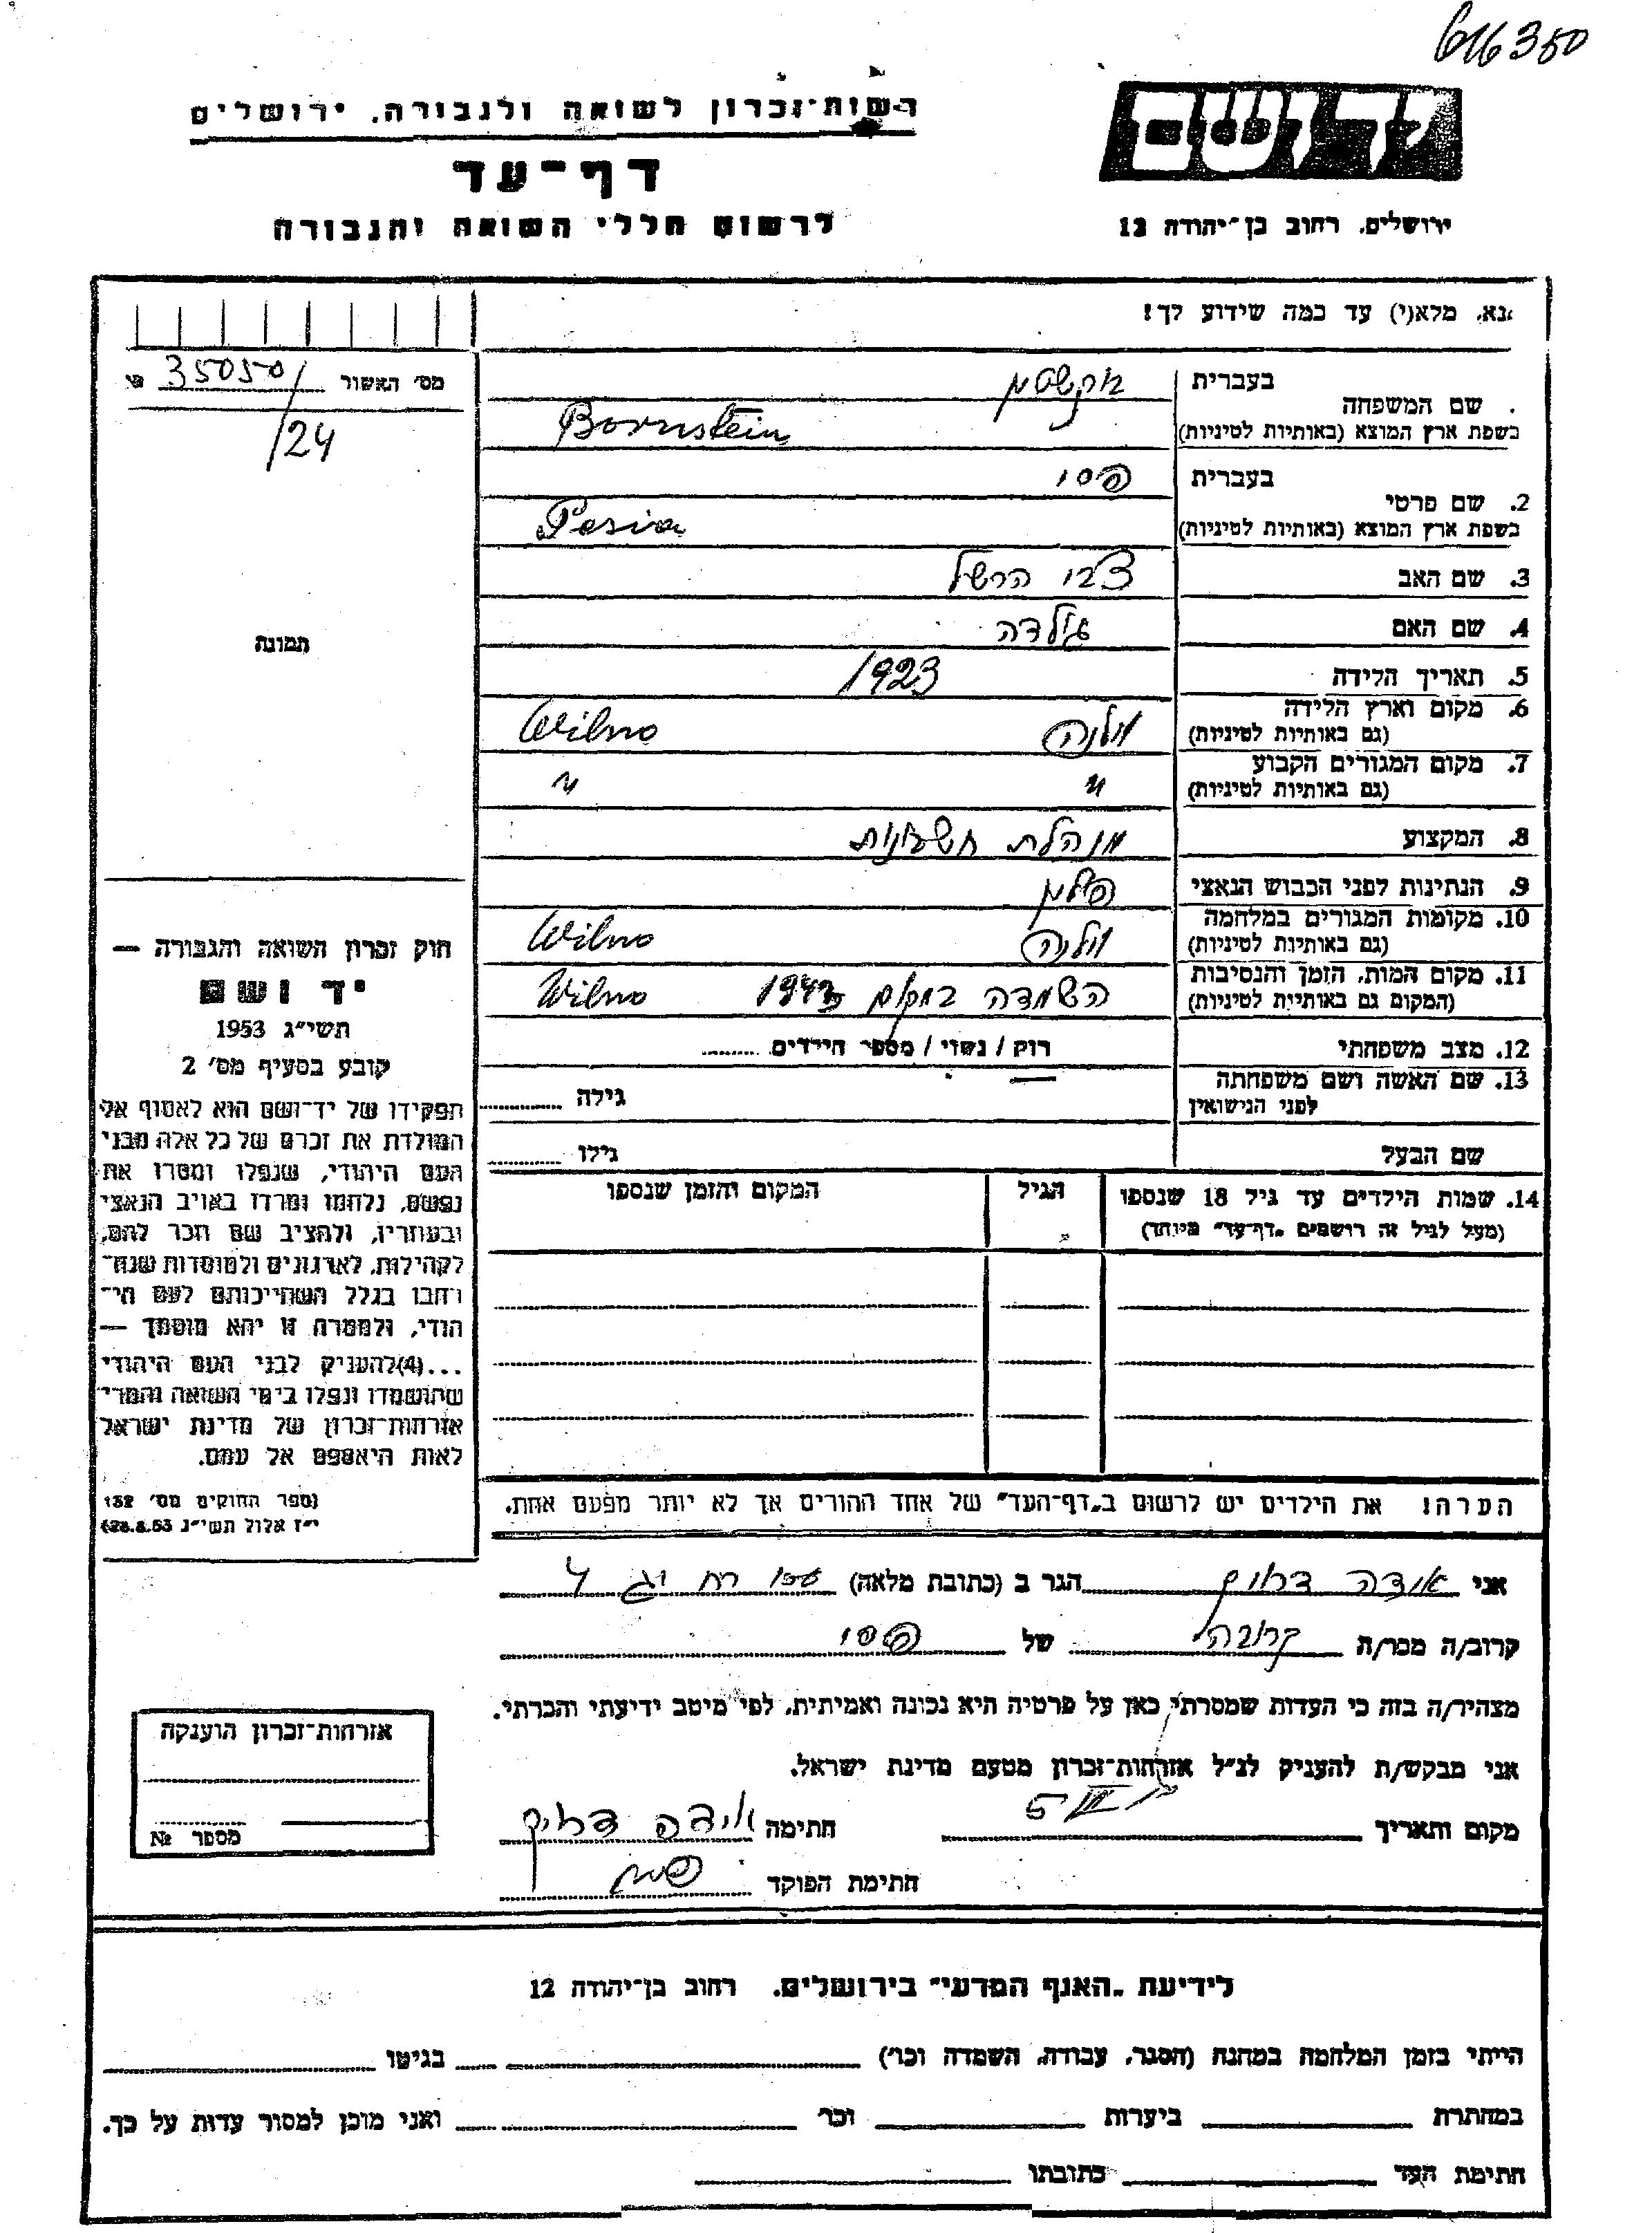 616350
רשות-זכרון לשואה ולגבורה, ירושלים
יד ושם
דף-עד
לרשום חללי השואה והגבורה
ירושלים, רחוב בן-יהודה 12
נא, מלא(י) עד כמה שידוע לך!
מס׳ האשור 35050/
/24
תמונה
שם המשפחה
בעברית
בשפת ארץ המוצא (באותיות לטיניות) Bornstein
2. שם פרטי
בעברית פסי
בשפת ארץ המוצא (באותיות לטיניות) Pesia
3. שם האב צבי הרשל
4. שם האם גולדה
5. תאריך הלידה 1923
6. מקום וארץ הלידה (גם באותיות לטיניות) וילנה Wilno
7. מקום המגורים הקבוע (גם באותיות לטיניות) " "
8. המקצוע מנהלת חשבונות
9. הנתינות לפני הכבוש הנאצי פולין
10. מקומות המגורים במלחמה (גם באותיות לטיניות) וילנה Wilno
11. מקום המות, הזמן והנסיבות (המקום גם באותיות לטיניות) השמדה במקום 1943 Wilno
12. מצב משפחתי רוק / נשוי / מספר הילדים
13. שם האשה ושם משפחתה לפני הנישואין גילה
שם הבעל גילו
14. שמות הילדים עד גיל 18 שנספו
(מעל לגיל זה רושמים "דף-עד" מיוחד)
הגיל
המקום והזמן שנספו
חוק זכרון השואה והגבורה —
יד ושם
תשי"ג 1953
קובע בסעיף מס׳ 2
תפקידו של יד-ושם הוא לאסוף אל
המולדת את זכרם של כל אלה מבני
העם היהודי, שנפלו ומסרו את
נפשם, נלחמו ומרדו באויב הנאצי
ובעוזריו, ולהציב שם וזכר להם,
לקהילות, לארגונים ולמוסדות שנח-
רבו בגלל השתייכותם לעם הי-
הודי, ולמטרה זו יהא מוסמך —
...(4)להעניק לבני העם היהודי
שהושמדו ונפלו בימי השואה והמרי
אזרחות-זכרון של מדינת ישראל
לאות היאספם אל עמם.
(ספר החוקים מס׳ 132
י"ז אלול תשי"ג 28.8.53)
הערה! את הילדים יש לרשום ב"דף-העד" של אחד ההורים אך לא יותר מפעם אחת.
אני אידה הגר ב (כתובת מלאה)
קרוב/ה מכר/ה קרובה של פסי
מצהיר/ה בזה כי העדות שמסרתי כאן על פרטיה היא נכונה ואמיתית, לפי מיטב ידיעתי והכרתי.
אני מבקש/ת להעניק לנ"ל אזרחות-זכרון מטעם מדינת ישראל.
מקום ותאריך חתימה אידה
חתימת הפוקד
אזרחות-זכרון הוענקה
מספר №
לידיעת "האגף המדעי" בירושלים, רחוב בן-יהודה 12
הייתי בזמן המלחמה במחנה (הסגר, עבודה, השמדה וכו׳) בגיטו
במחתרת ביערות וכו׳ ואני מוכן למסור עדות על כך.
חתימת העד כתובתו